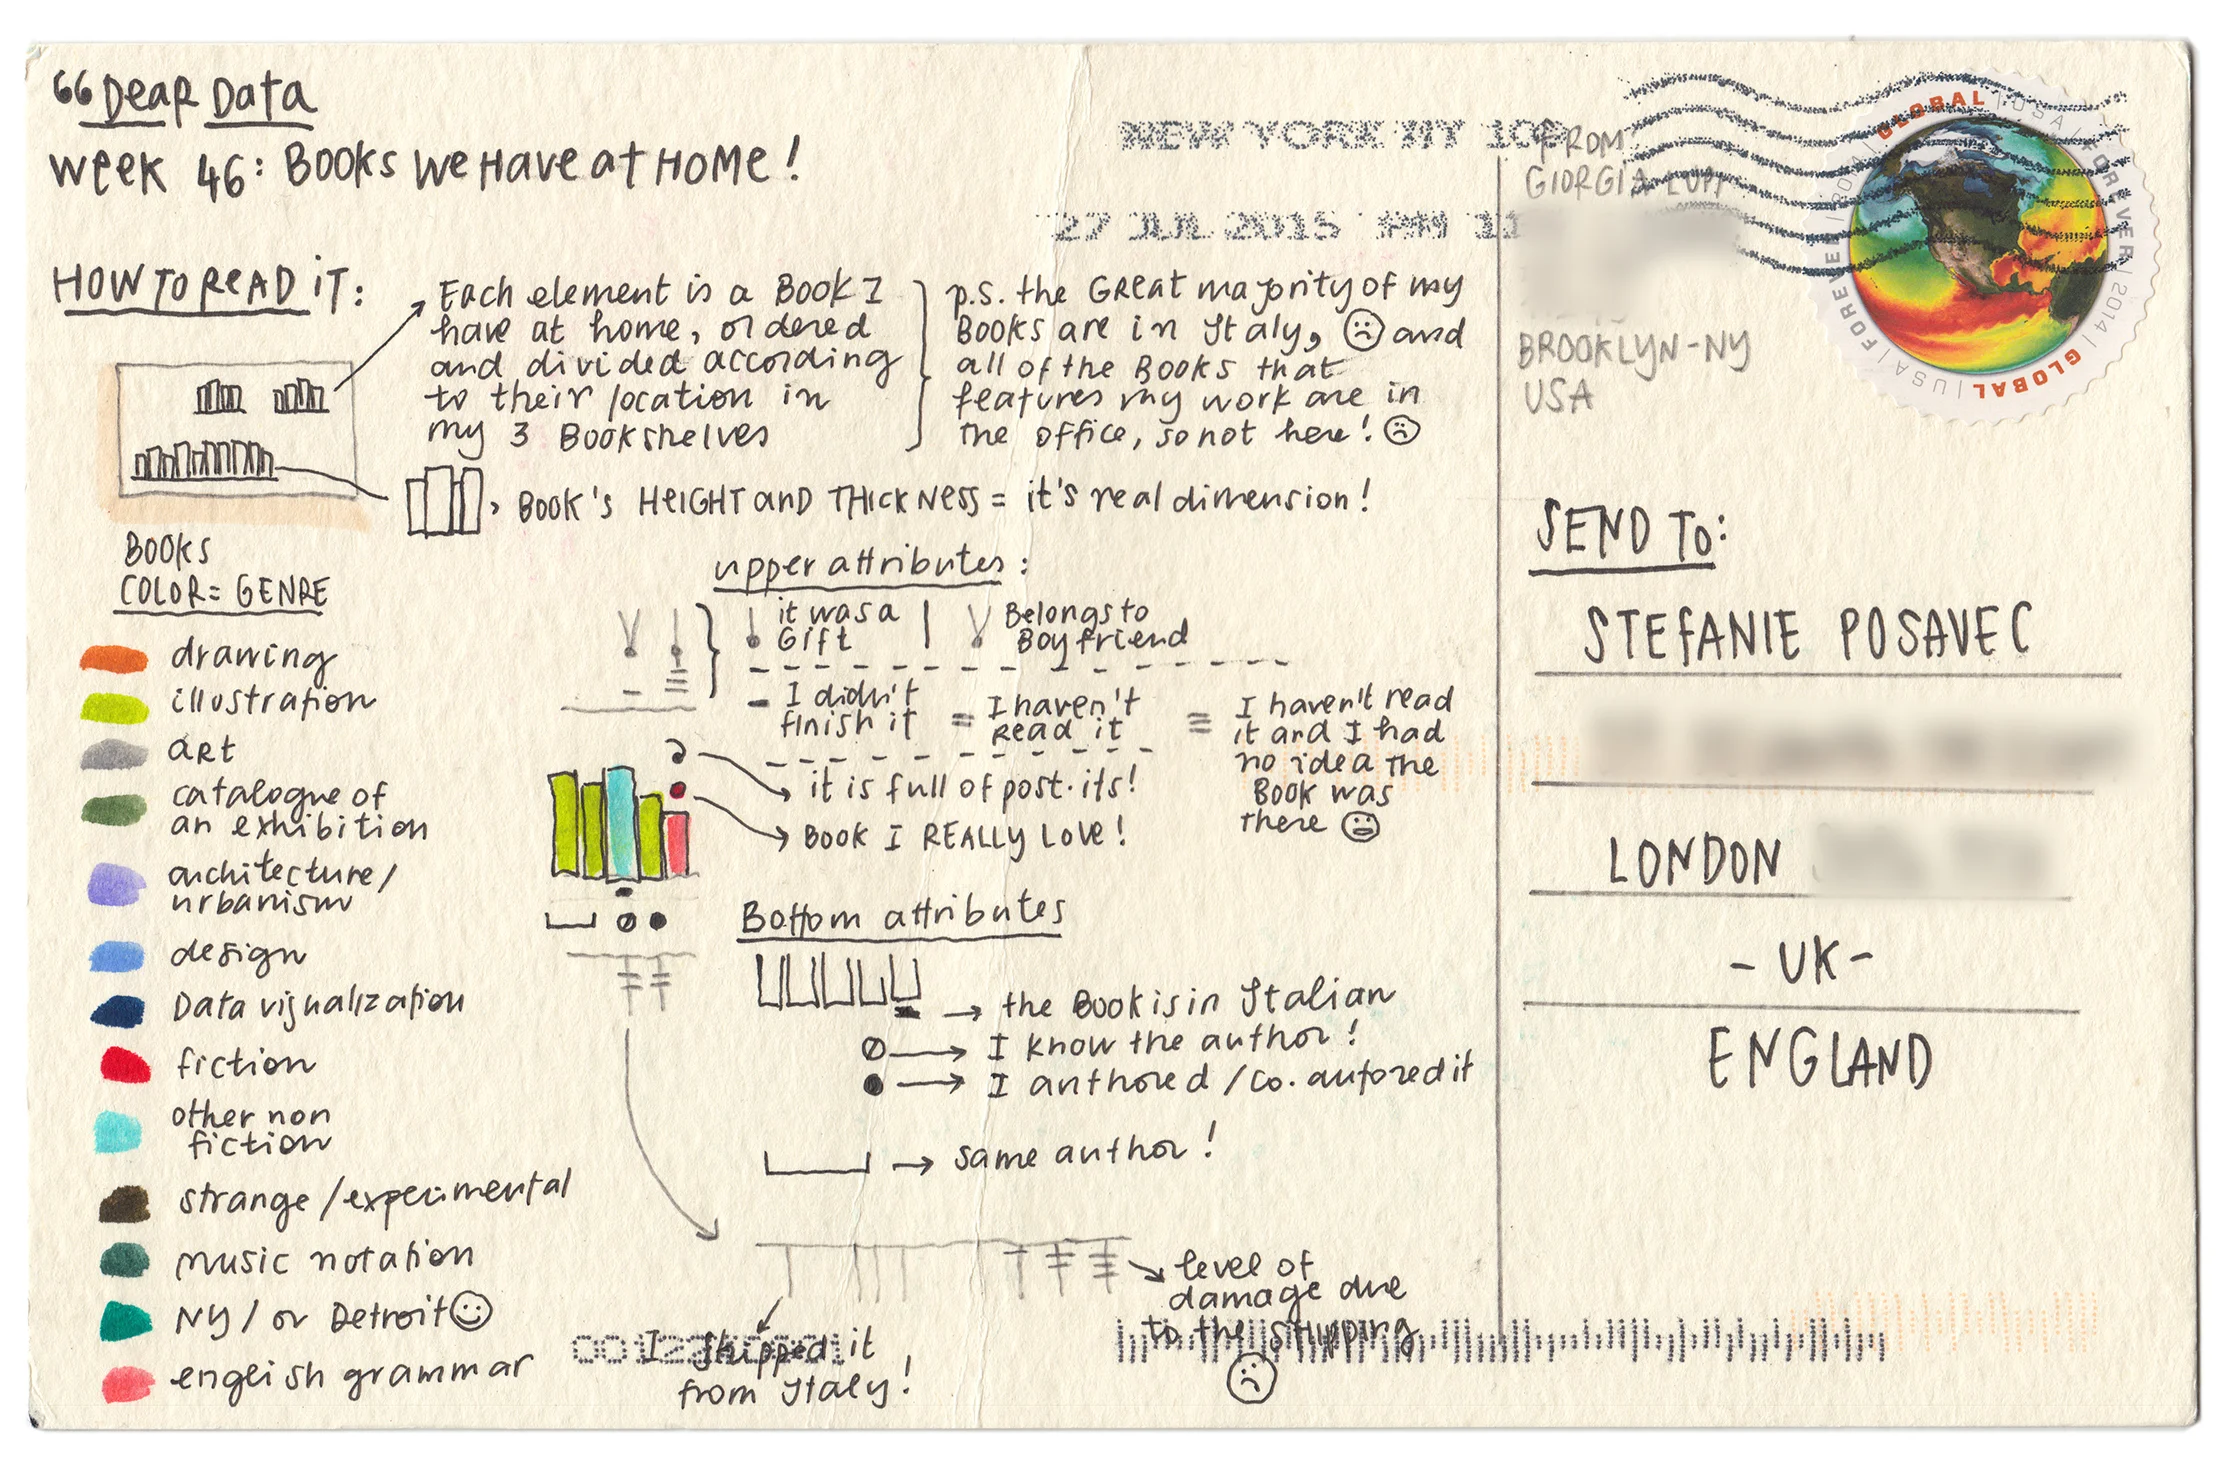 “Dear Data
Week 46: Books We Have at Home!
HOW TO READ IT:
Each element is a Book I
have at home, ordered
and divided according
to their location in
my 3 Bookshelves
p.s. the GReat majority of my
Books are in Italy, ☹ and
all of the Books that
features my work are in
the office, so not here! ☹
Book's HEIGHT and THICKNESS = it's real dimension!
BOOKS
COLOR = GENRE
drawing
illustration
art
catalogue of
an exhibition
architecture/
urbanism
design
Data visualization
fiction
other non
fiction
strange/experimental
music notation
NY/ or Detroit ☺
english grammar
upper attributes:
it was a
Gift
Belongs to
Boyfriend
- I didn't
finish it
= I haven't
Read it
≡ I haven't read
it and I had
no idea the
Book was
there
it is full of post-its!
Book I REALLY LOVE!
Bottom attributes
→ the Book is in Italian
→ I know the author!
→ I authored / co.autored it
→ same author!
level of
damage due
to the shipping
☹
I shipped it
from Italy!
NEW YORK NY 100
27 JUL 2015 PM 11
FROM
GIORGIA LUPI
BROOKLYN-NY
USA
GLOBAL | USA | FOREVER | 2014 | GLOBAL | USA | FOREVER
SEND TO:
STEFANIE POSAVEC
LONDON
- UK -
ENGLAND